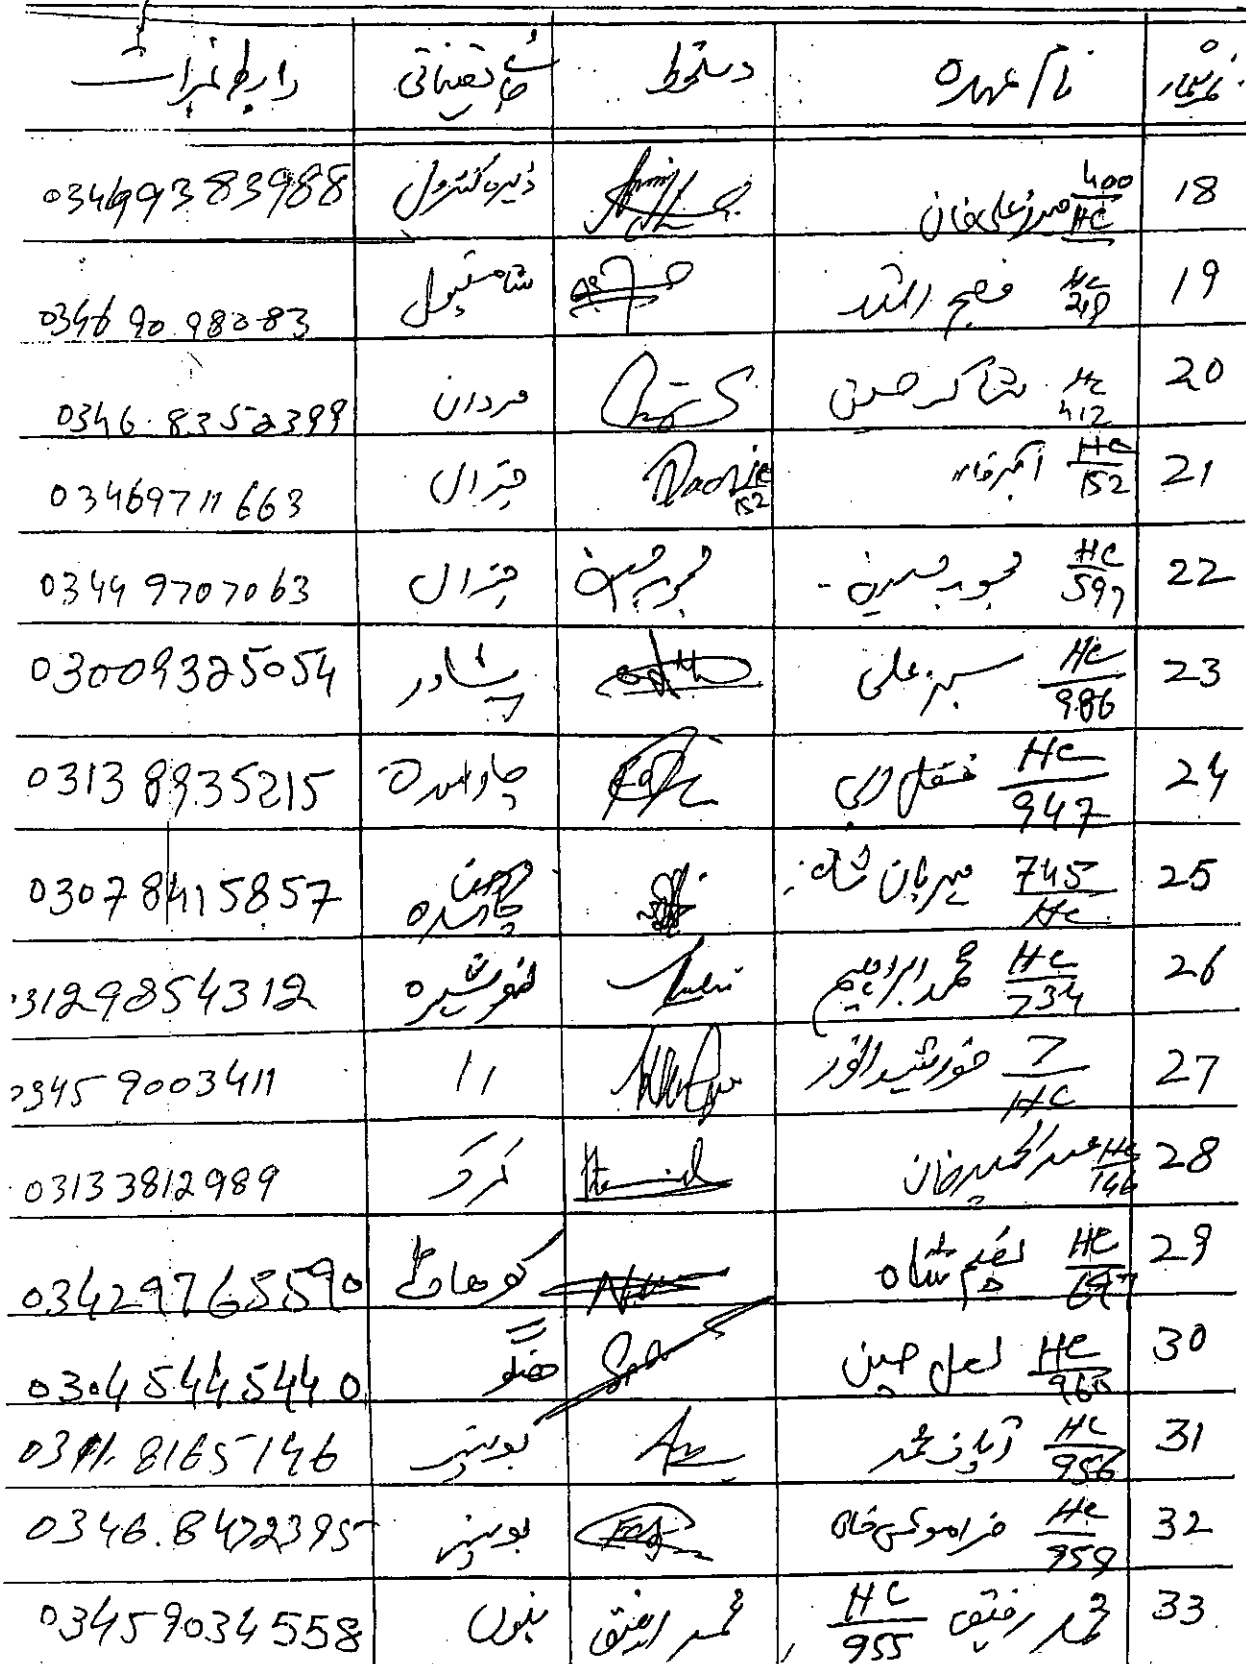 نمبر شمار نام / عہدہ دستخط جائے تعیناتی رابطہ نمبرات
18 400/HC خان دیر کنٹرول 03469383988
19 HC/ فصیح اللہ 03469098083
20 HC/412 شاکر حسین مردان 0346.8352399
21 HC/152 اکبر خان HC/152 چترال 03469711663
22 HC/597 محبوب حسین - محبوب حسین چترال 03449707063
23 HC/986 سبز علی پشاور 03009325054
24 HC/947 فضل ربی چارسدہ 03138935215
25 745/HC مہربان شاہ چارسدہ 03078415857
26 HC/734 محمد ابراہیم نوشہرہ 03129854312
27 7/HC خورشید انور 11 03459003411
28 HC/146 عبدالحمید خان کرک 03133812989
29 HC/ شاہ کوھاٹ 03429765590
30 HC/960 لعل حسین ھنگو 03045445440
31 HC/956 محمد بونیر 0341.8165146
32 HC/959 فراموش خان بونیر 0346.8472395
33 HC/955 محمد رفیق محمد رفیق بنوں 03459034558